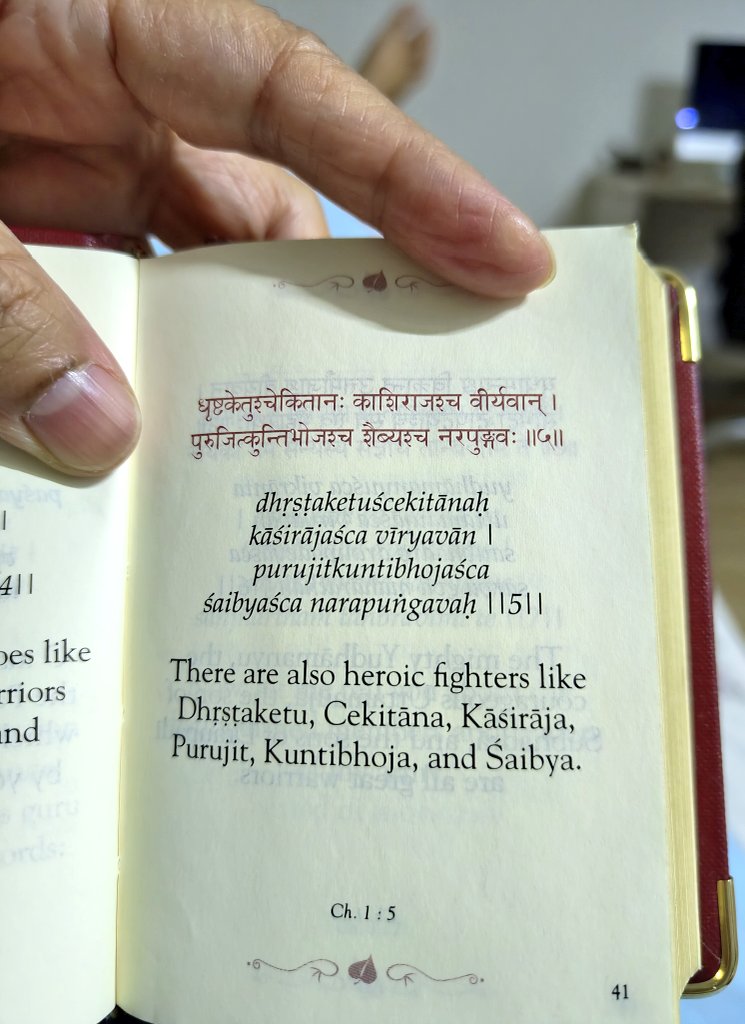 |
4||
oes like
rriors
and
धृष्टकेतुश्चेकितानः काशिराजश्च वीर्यवान् ।
पुरुजित्कुन्तिभोजश्च शैब्यश्च नरपुङ्गवः ॥५॥
dhṛṣṭaketuścekitānaḥ
kāśirājaśca vīryavān |
purujitkuntibhojaśca
śaibyaśca narapuṅgavaḥ ||5||
There are also heroic fighters like
Dhṛṣṭaketu, Cekitāna, Kāśirāja,
Purujit, Kuntibhoja, and Śaibya.
Ch. 1 : 5
41